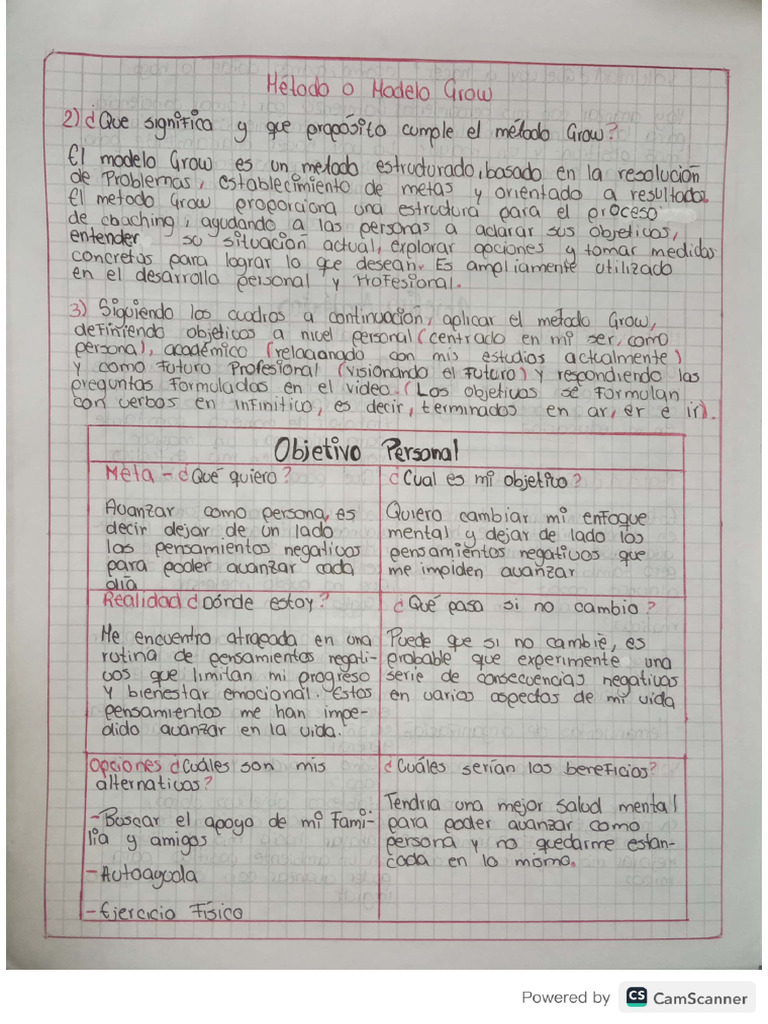 Método o Modelo Grow
2) ¿Que significa y que propósito cumple el método Grow?
El modelo Grow es un metodo estructurado, basado en la resolución
de Problemas, establecimiento de metas y orientado a resultados.
El metodo Grow proporciona una estructura para el proceso
de coaching, ayudando a las personas a aclarar sus objetivos,
entender su situación actual, explorar opciones y tomar medidas
concretas para lograr lo que desean. Es ampliamente utilizado
en el desarrollo personal y Profesional.
3) Siguiendo los cuadros a continuación, aplicar el metodo Grow,
definiendo objetivos a nivel personal (centrado en mi ser, como
persona), académico (relacionando con mis estudios actualmente)
y como futuro Profesional (visionando el futuro) y respondiendo las
preguntas formuladas en el video. (Los objetivos se formulan
con verbos en infinitivo, es decir, terminados en ar, er e ir).
Objetivo Personal
Meta - ¿Qué quiero?
Avanzar como persona, es
decir dejar de un lado
los pensamientos negativos
para poder avanzar cada
día
¿Cual es mi objetivo?
Quiero cambiar mi enfoque
mental y dejar de lado los
pensamientos negativos que
me impiden avanzar
Realidad ¿Dónde estoy?
Me encuentro atrapada en una
rutina de pensamientos negati-
vos que limitan mi progreso
y bienestar emocional. Estos
pensamientos me han impe-
dido avanzar en la vida.
¿Qué pasa si no cambio?
Puede que si no cambie, es
probable que experimente una
serie de consecuencias negativas
en varios aspectos de mi vida
Opciones ¿Cuáles son mis
alternativas?
- Buscar el apoyo de mi fami-
lia y amigos
- Autoayuda
- Ejercicio Físico
¿Cuáles serían los beneficios?
Tendria una mejor salud mental
para poder avanzar como
persona y no quedarme estan-
cada en lo mismo.
Powered by CS CamScanner